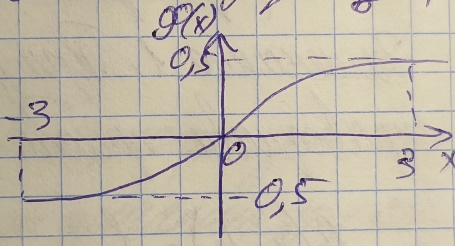 φ(x)
0,5
-3
0
3
x
-0,5